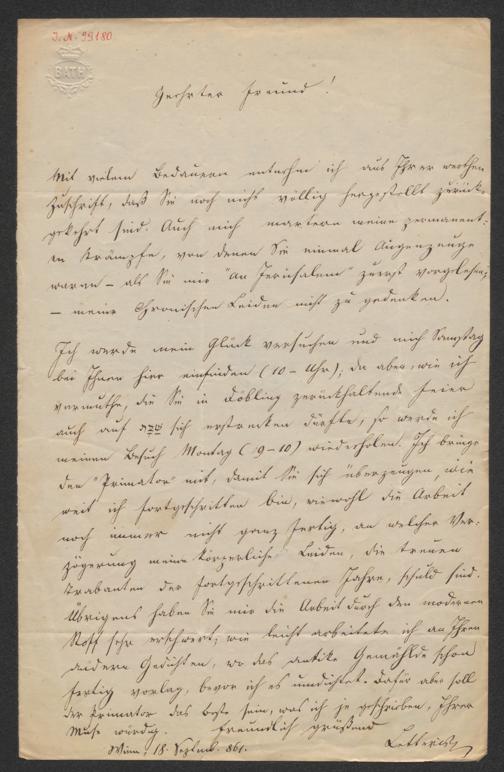 I. N. 99180
BATH
Geehrter Freund!
Mit vielem Bedauern entnehme ich aus Ihrer werthen
Zuschrift, daß Sie noch nicht völlig hergestellt zurück-
gekehrt sind. Auch mich martern meine permanent-
en Krämpfe, von denen Sie einmal Augenzeuge
waren – als Sie mir "An Jerusalem" zuerst vorgelesen;
– meine chronischen Leiden nicht zu gedenken.
Ich werde mein Glück versuchen und mich Samstag
bei Ihnen hier einfinden (10 – Uhr); da aber, wie ich
vermuthe, die Sie in Döbling zurückhaltende Feier
auch auf שבת sich erstrecken dürfte, so werde ich
meinen Besuch Montag (9–10) wiederholen. Ich bringe
den "Primator" mit, damit Sie sich überzeugen wie
weit ich fortgeschritten bin, wiewohl die Arbeit
noch immer nicht ganz fertig, an welcher Ver-
zögerung meine körperliche Leiden, die treuen
Trabanten der fortgeschrittenen Jahre, schuld sind.
Übrigens haben Sie mir die Arbeit durch den modernen
Stoff sehr erschwert; wie leicht arbeitete ich an Ihren
andern Gedichten, wo das antike Gemählde schon
fertig vorlag, bevor ich es umdichtete. Dafür aber soll
der Primator das beste sein, was ich je geschrieben, Ihrer
Muse würdig. Freundlich grüßend
Wien, 18. Septemb. 861. Letteris